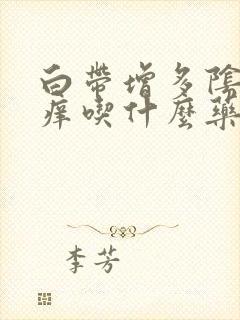 白帶增多陰
癢喫什麼藥
李芳